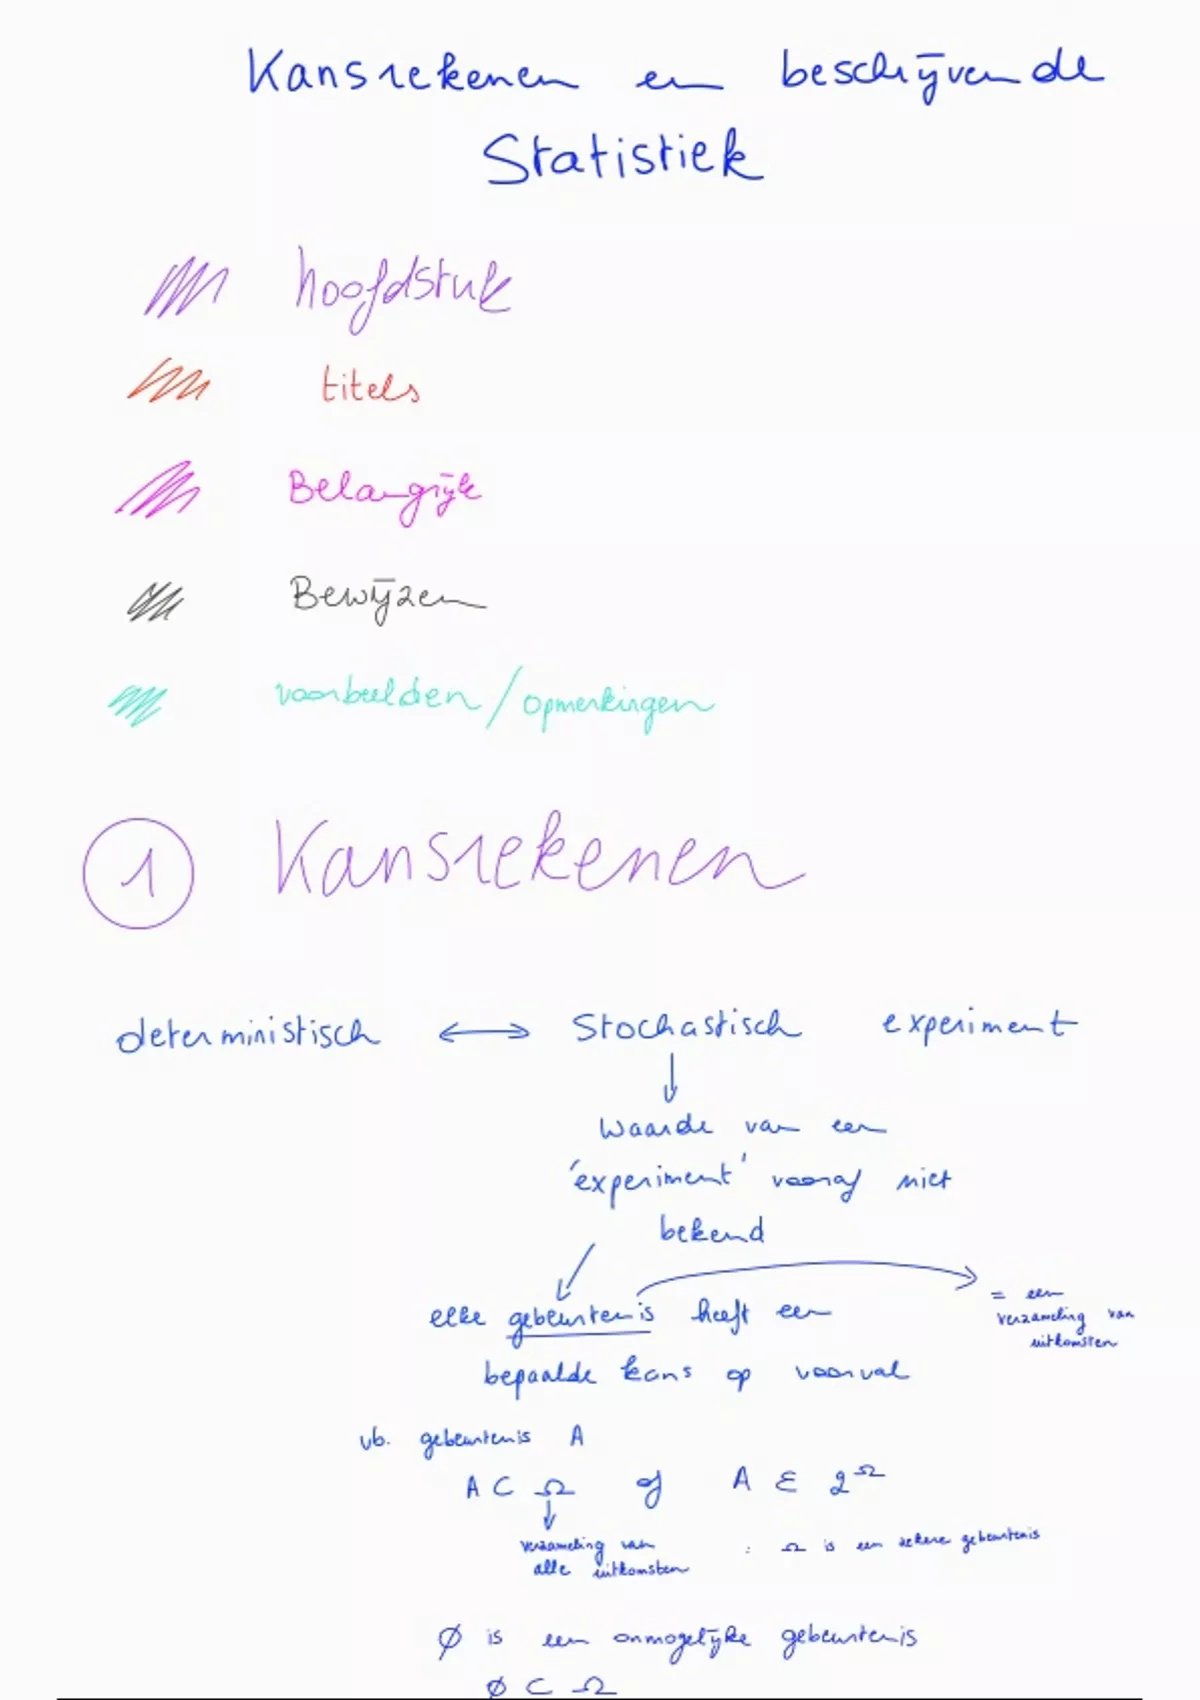 Kansrekenen en beschrijvende
Statistiek
hoofdstuk
titels
Belangrijk
Bewijzen
voorbeelden / opmerkingen
1 Kansrekenen
deterministisch ↔ Stochastisch experiment
↓
Waarde van een
'experiment' vooraf niet
bekend
elke gebeurtenis heeft een
= een
verzameling van
uitkomsten
bepaalde kans op voorval
vb. gebeurtenis A
A ⊂ Ω of A ∈ 2^Ω
↓
verzameling van
alle uitkomsten
: Ω is een zekere gebeurtenis
∅ is een onmogelijke gebeurtenis
∅ ⊂ Ω